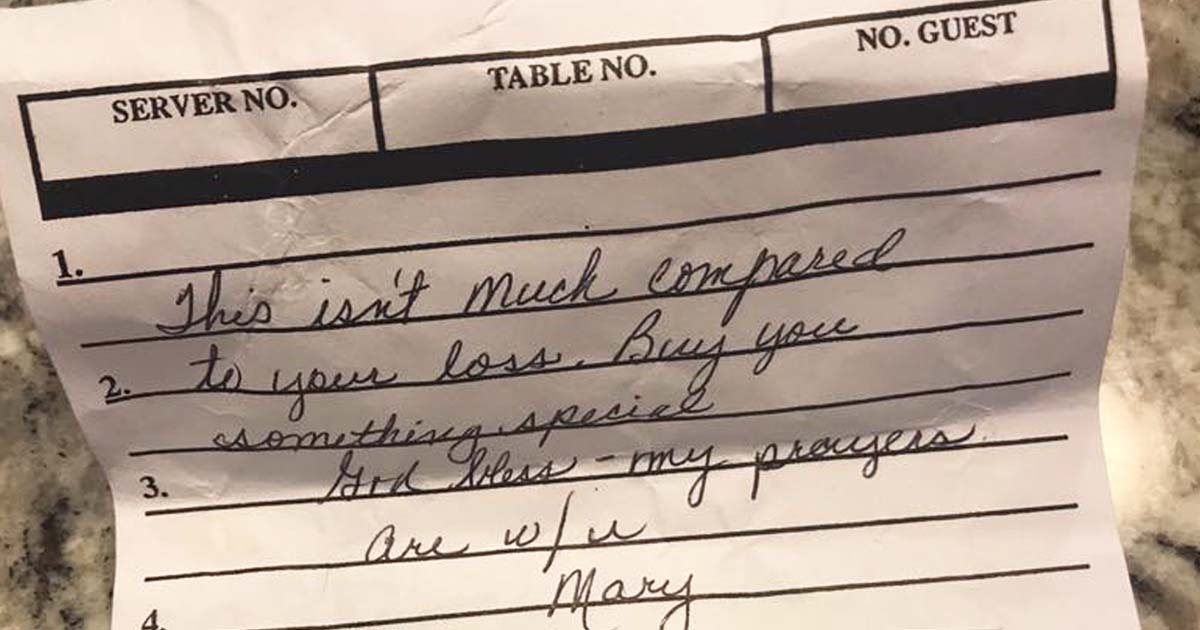 SERVER NO. TABLE NO. NO. GUEST
1.
This isn't much compared
2. to your loss. Buy you
something special
3. God bless - my prayers
are w/u
4. Mary